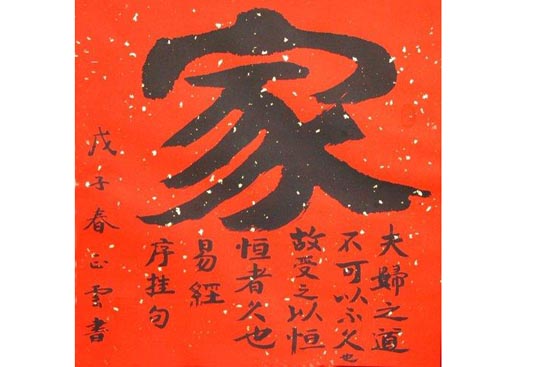 家
夫婦之道
不可以不久也
故受之以恒
恒者久也
易經
序挂句
戊子春正雲書